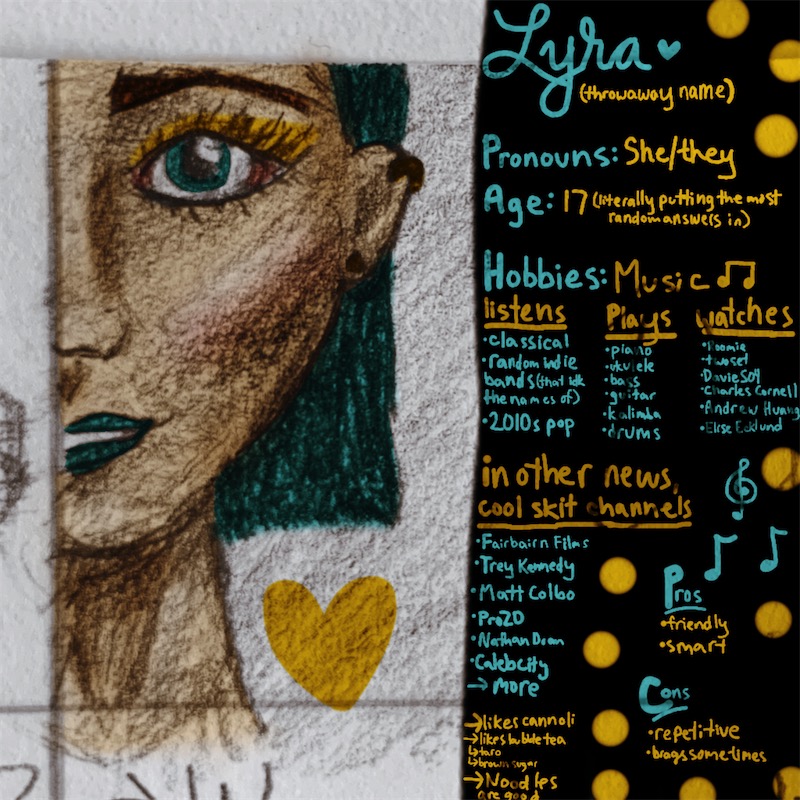 Lyra
(throwaway name)
Pronouns: She/they
Age: 17 (literally putting the most
random answers in)
Hobbies: Music
listens
•classical
•random indie
bands (that idk
the names of)
•2010s pop
Plays
•piano
•ukulele
•bass
•guitar
•kalimba
•drums
watches
•Roomie
•twoset
•Davie504
•Charles Cornell
•Andrew Huang
•Elise Ecklund
in other news,
cool skit channels
•Fairbairn Films
•Trey Kennedy
•Matt Colbo
•ProZD
•Nathan Doan
•Calebcity
→more
Pros
•friendly
•smart
Cons
•repetitive
•brags sometimes
→likes cannoli
→likes bubble tea
↳taro
↳brown sugar
→Noodles
are good